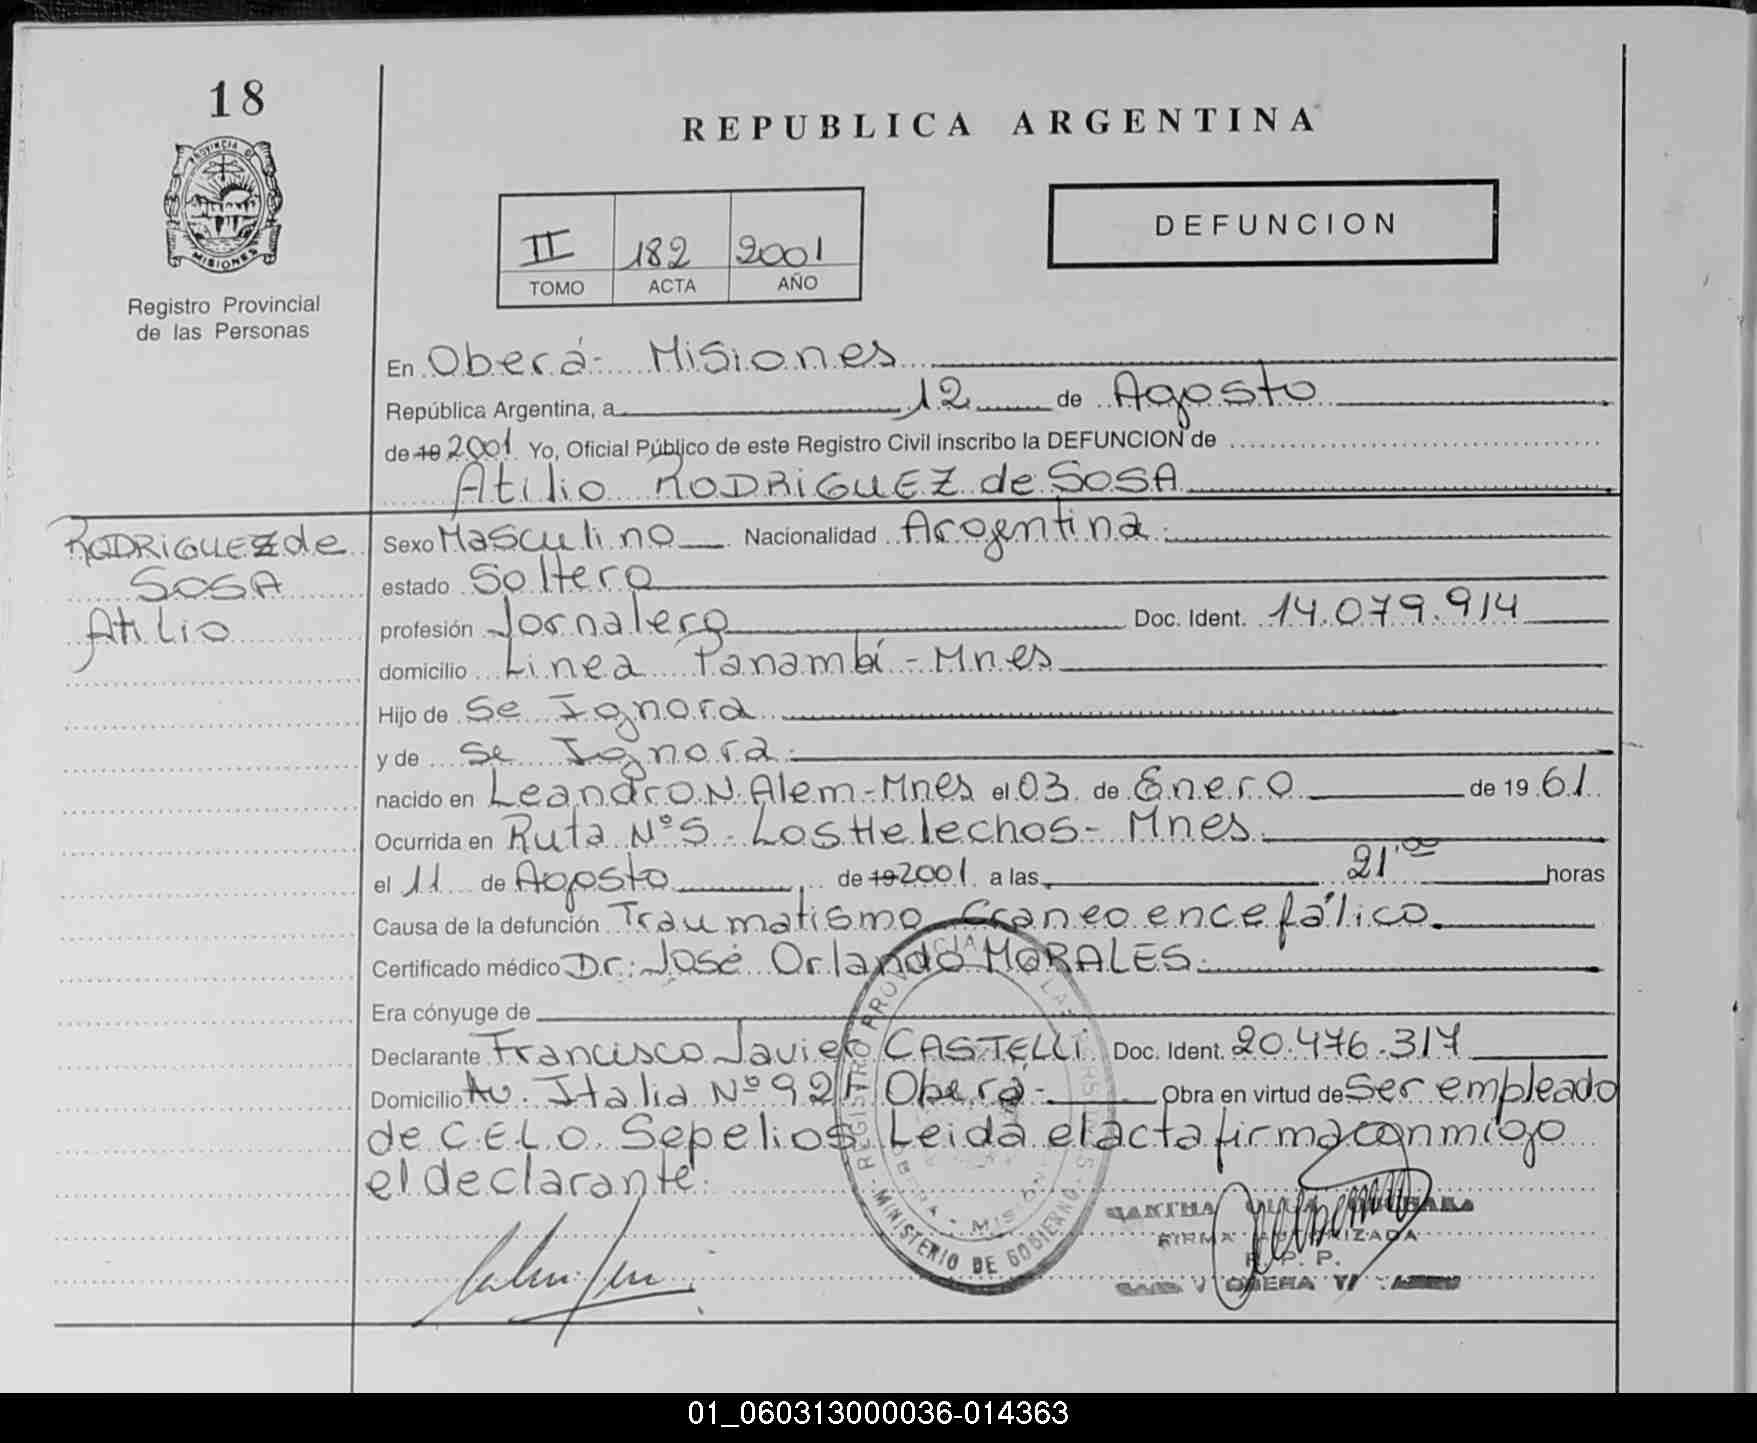 18
PROVINCIA DE
MISIONES
Registro Provincial
de las Personas
REPUBLICA ARGENTINA
II 182 2001
TOMO ACTA AÑO
DEFUNCION
En Oberá - Misiones
República Argentina, a 12 de Agosto
de 19 2001 Yo, Oficial Público de este Registro Civil inscribo la DEFUNCION de
Atilio RODRIGUEZ de SOSA
RODRIGUEZ de
SOSA
Atilio
Sexo Masculino Nacionalidad Argentina
estado Soltero
profesión Jornalero Doc. Ident. 14.079.914
domicilio Linea Panambí - Mnes
Hijo de Se Ignora
y de Se Ignora
nacido en Leandro N. Alem - Mnes el 03 de Enero de 19 61
Ocurrida en Ruta Nº 5 - Los Helechos - Mnes
el 11 de Agosto de 19 2001 a las 21,00 horas
Causa de la defunción Traumatismo Craneo encefálico.
Certificado médico Dr. José Orlando MORALES
Era cónyuge de
Declarante Francisco Javier CASTELLI Doc. Ident. 20.476.317
Domicilio Av. Italia Nº Oberá - Obra en virtud de Ser empleado
de C.E.L.O. Sepelios. Leida el acta firma conmigo
el declarante
REGISTRO PROVINCIAL DE LAS
MINISTERIO DE GOBIERNO
FIRMA AUTORIZADA
R. P. P.
OBERA
01_060313000036-014363